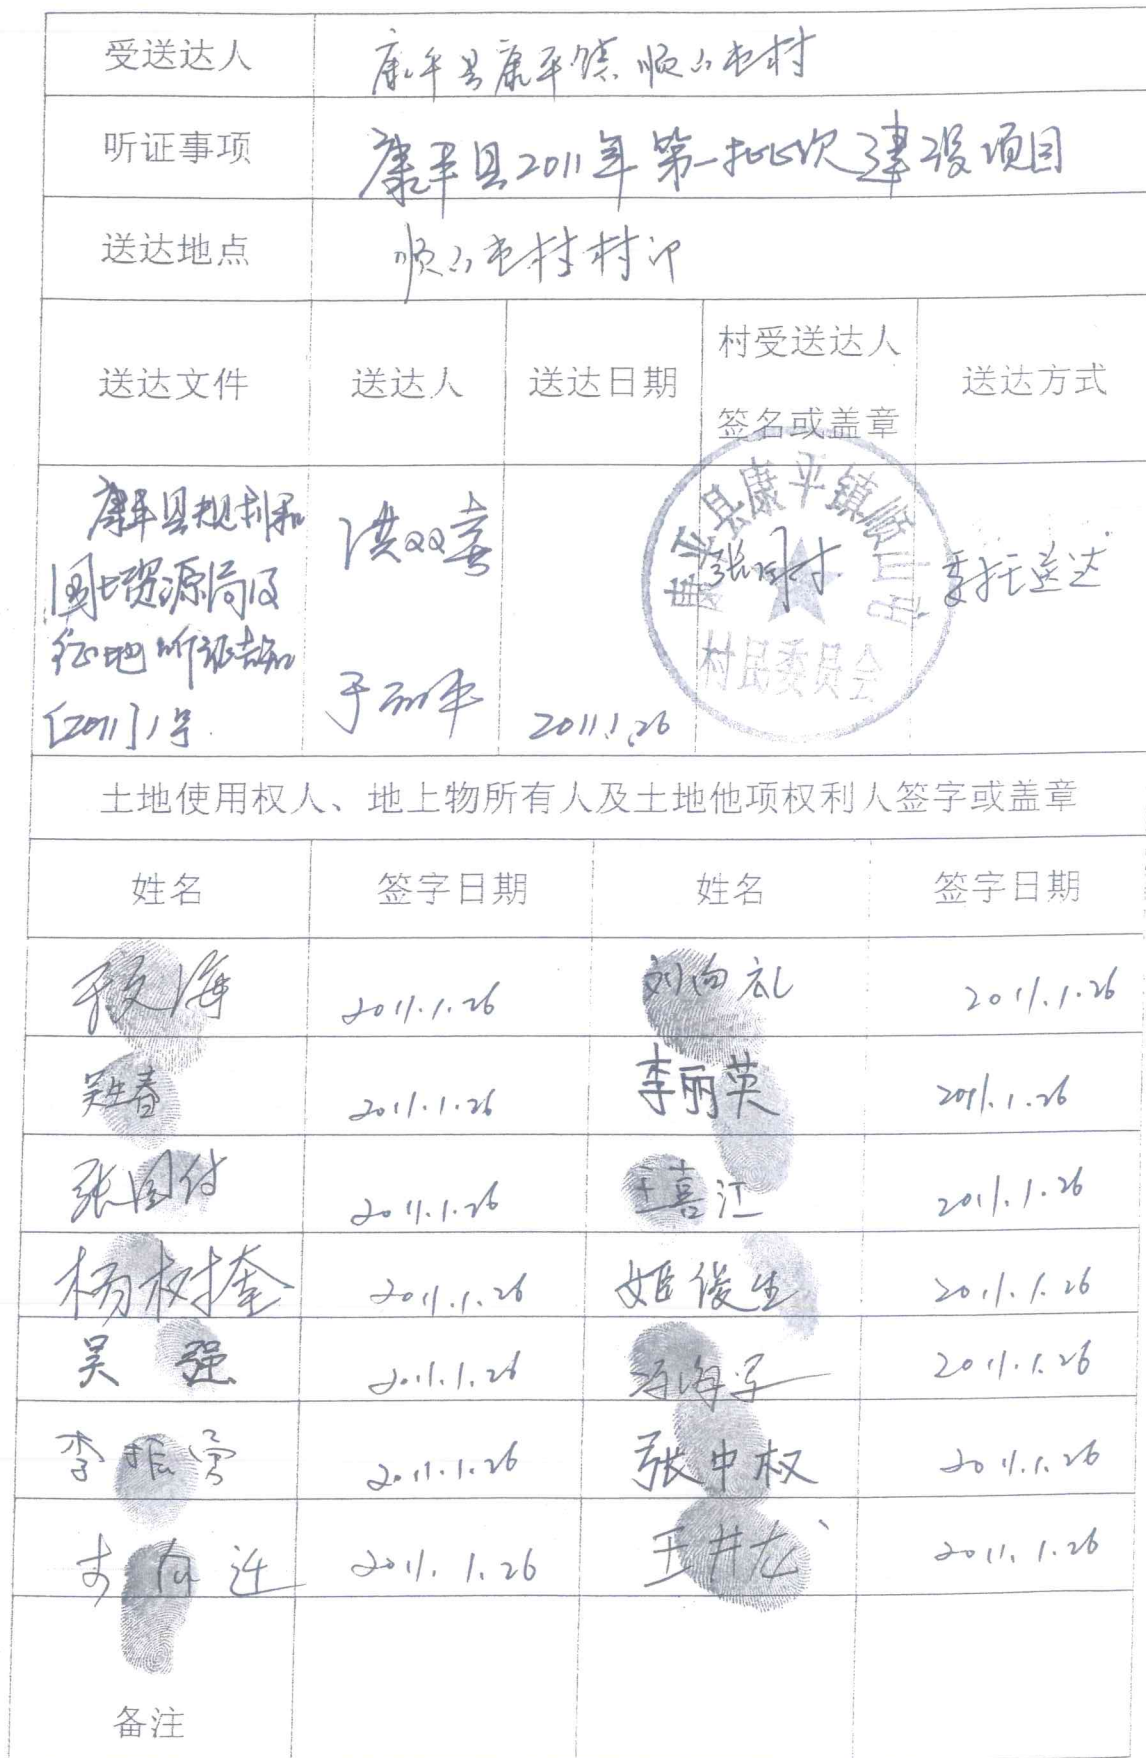 受送达人 康平县康平镇顺山屯村
听证事项 康平县2011年第一批次建设项目
送达地点 顺山屯村村
送达文件 送达人 送达日期 村受送达人签名或盖章 送达方式
康平县规划和
国土资源局
征地听证告知
[2011]1号
洪双喜
于
2011.1.26
康平县康平镇顺山屯
村民委员会
张国付
委托送达
土地使用权人、地上物所有人及土地他项权利人签字或盖章
姓名 签字日期 姓名 签字日期
于文海 2011.1.26 刘向礼 2011.1.26
春 2011.1.26 李丽英 2011.1.26
张国付 2011.1.26 王喜江 2011.1.26
杨树奎 2011.1.26 姬俊生 2011.1.26
吴强 2011.1.26 海军 2011.1.26
李振勇 2011.1.26 张中权 2011.1.26
2011.1.26 王井龙 2011.1.26
备注